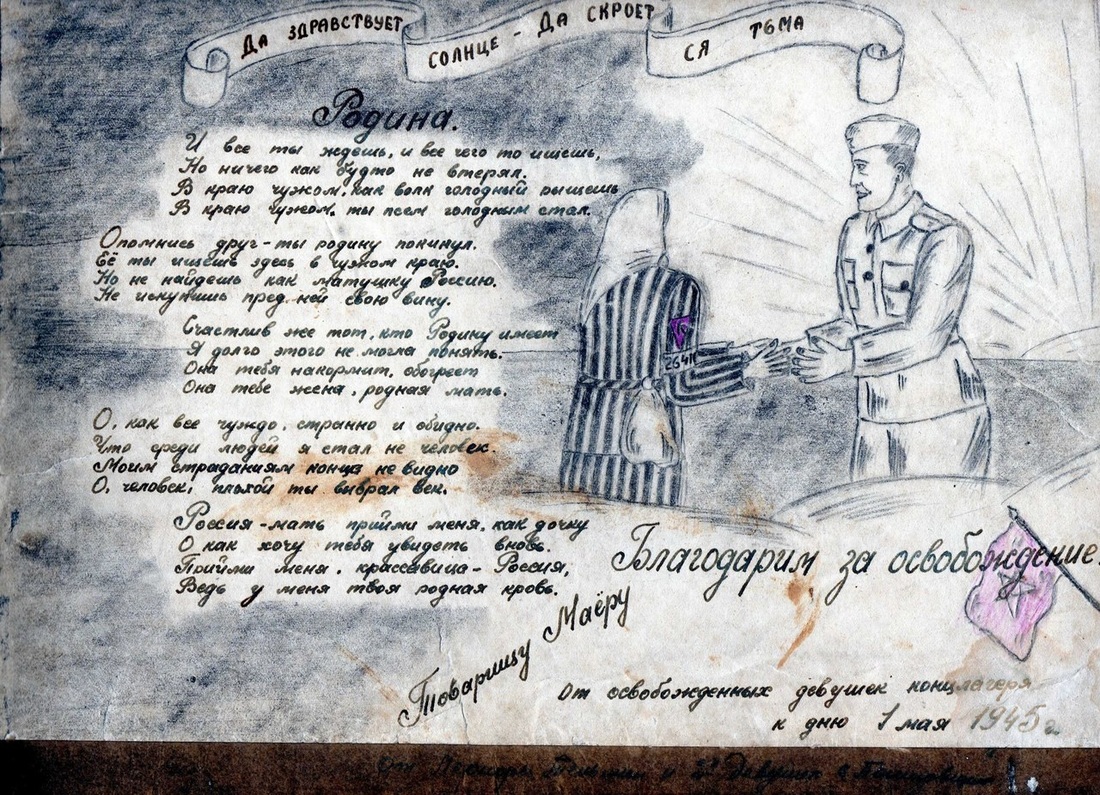 ДА ЗДРАВСТВУЕТ СОЛНЦЕ - ДА СКРОЕТ СЯ ТЬМА
Родина.
И все ты ждешь, и все чего то ищешь,
Но ничего как будто не втерял.
В краю чужом, как волк голодный рыщешь
В краю чужом, ты псом голодным стал.
Опомнись друг - ты родину покинул.
Её ты ищешь здесь в чужом краю.
Но не найдешь как матушку Россию.
Не искупишь пред ней свою вину.
Счастлив же тот, кто Родину имеет
Я долго этого не могла понять.
Она тебя накормит, обогреет
Она тебе жена, родная мать.
О, как все чуждо, странно и обидно.
Что среди людей я стал не человек.
Моим страданиям конца не видно
О, человек, плохой ты выбрал век.
Россия - мать прийми меня, как дочку
О как хочу тебя увидеть вновь.
Прийми меня, крассавица - Россия,
Ведь у меня твоя родная кровь.
26411
Благодарим за освобождение.
Товарищу Маёру
От освобожденных девушек концлагеря
к дню 1 мая 1945 г.
От